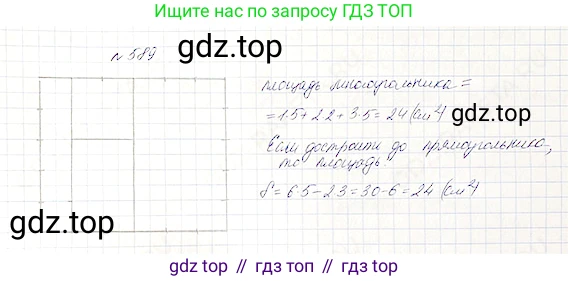 Ищите нас по запросу ГДЗ ТОП
№ 589
gdz.top
площадь многоугольника =
= 1·5 + 2·2 + 3·5 = 24 (см²)
gdz.top
Если достроить до прямоугольника,
то площадь
S = 6·5 - 2·3 = 30 - 6 = 24 (см²)
gdz.top
gdz.top // гдз топ // гдз.топ